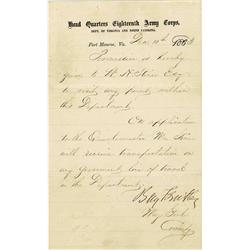 Head Quarters Eighteenth Army Corps,
DEPT. OF VIRGINIA AND NORTH CAROLINA
Fort Monroe, Va. Dec 10th 1863
Permission is hereby
given to W. N. Esq
to visit any points within
this Department.
On application
to the Quartermaster Mr
will receive transportation on
any government line of travel
in the Department
Benj F Butler
Maj Genl
Comdg